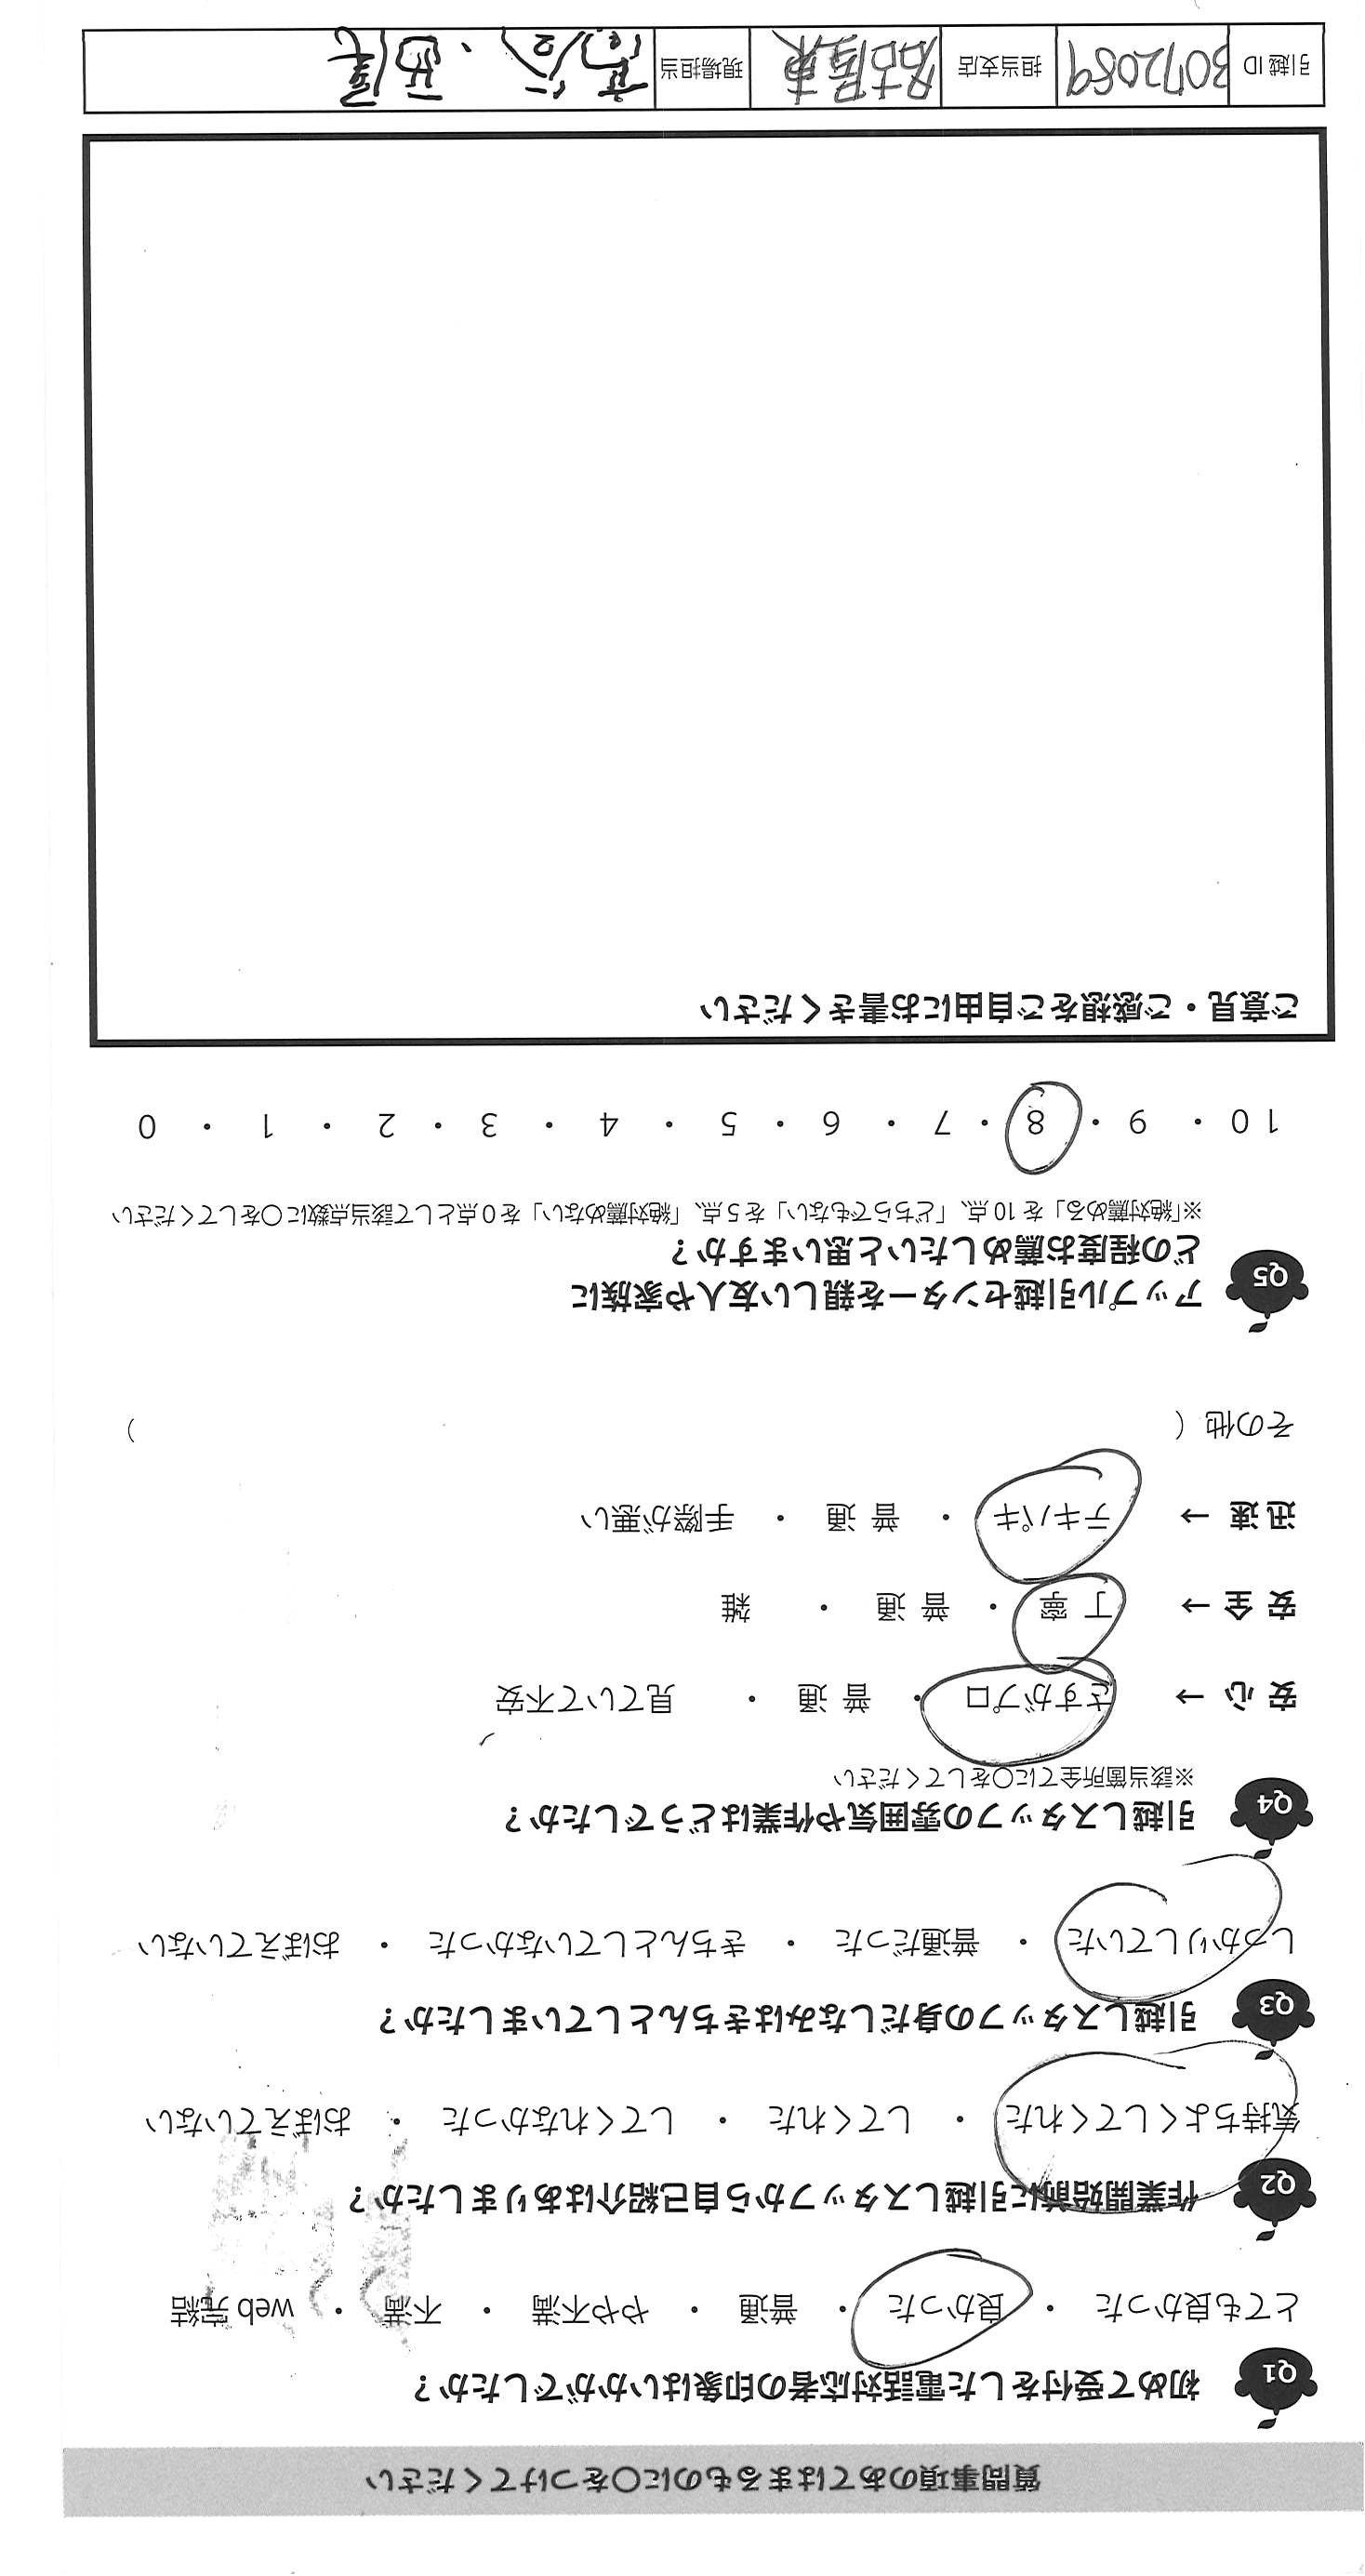 質問事項のあてはまるものに○をつけてください
Q1 初めて受付をした電話対応者の印象はいかがでしたか？
とても良かった ・ 良かった ・ 普通 ・ やや不満 ・ 不満 ・ web 完結
Q2 作業開始前に引越しスタッフから自己紹介はありましたか？
気持ちよくしてくれた ・ してくれた ・ してくれなかった ・ おぼえていない
Q3 引越しスタッフの身だしなみはきちんとしていましたか？
しっかりしていた ・ 普通だった ・ きちんとしていなかった ・ おぼえていない
Q4 引越しスタッフの雰囲気や作業はどうでしたか？
※該当箇所全てに○をしてください
安 心 → さすがプロ ・ 普 通 ・ 見ていて不安
安 全 → 丁 寧 ・ 普 通 ・ 雑
迅 速 → テキパキ ・ 普 通 ・ 手際が悪い
その他（ ）
Q5 アップル引越センターを親しい友人や家族に
どの程度お薦めしたいと思いますか？
※「絶対薦める」を 10 点、「どちらでもない」を 5 点、「絶対薦めない」を 0 点として該当点数に○をしてください
10 ・ 9 ・ 8 ・ 7 ・ 6 ・ 5 ・ 4 ・ 3 ・ 2 ・ 1 ・ 0
ご意見・ご感想をご自由にお書きください
引越 ID 3072089 担当支店 名古屋東 現場担当 ・西尾